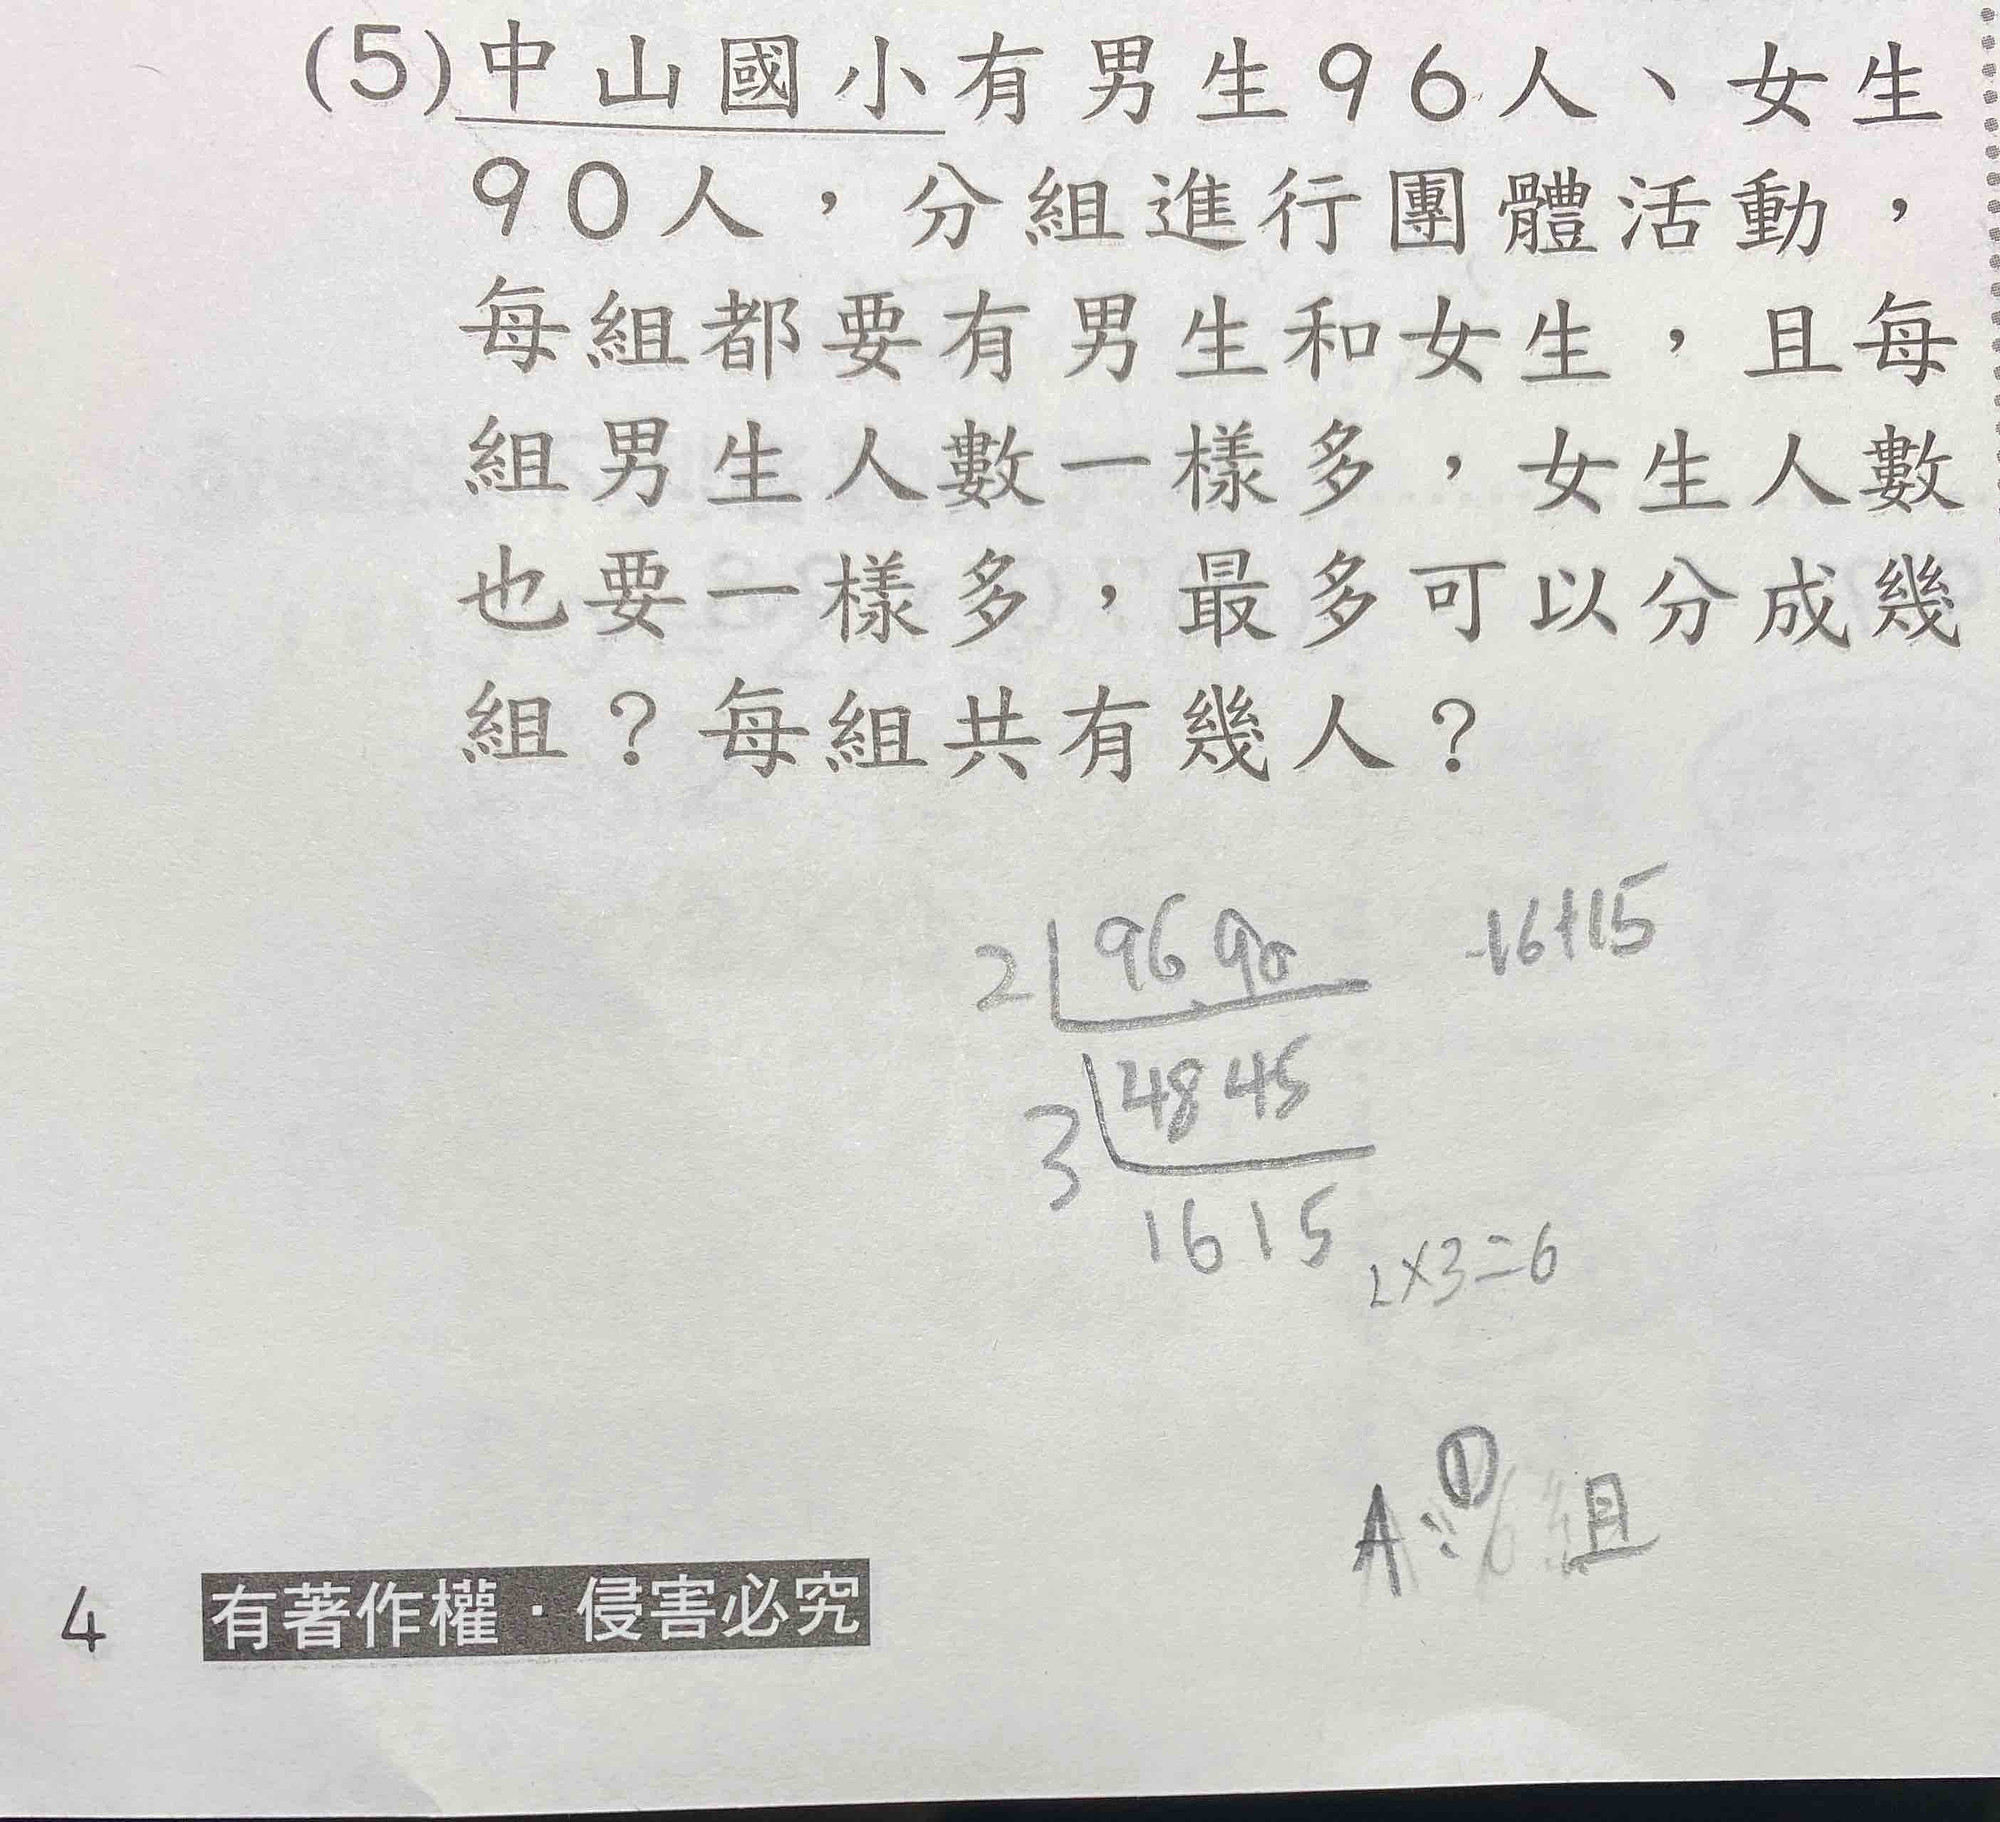 (5)中山國小有男生96人、女生
90人，分組進行團體活動，
每組都要有男生和女生，且每
組男生人數一樣多，女生人數
也要一樣多，最多可以分成幾
組？每組共有幾人？
2 96 90
16+15
3 48 45
16 15
2×3=6
A: ① 6 組
4 有著作權·侵害必究